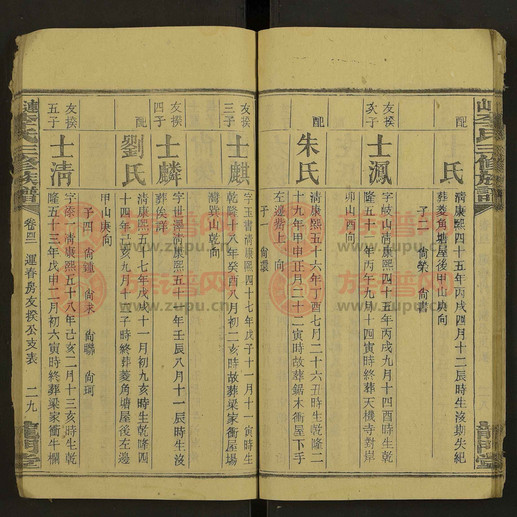 李氏三修族譜
配
氏
清康熙四十五年丙戌四月十二辰時生沒期失紀
葬菱角塘屋後甲山庚向
子二 尚榮 尚書
友揆
次子
士鳳
字岐山清康熙四十五年丙戌九月十四酉時生乾
隆五十一年丙午九月十四寅時葬天機寺對岸
卯山酉向
配
朱氏
清康熙五十六年丁酉七月二十六丑時生乾隆二
十九年甲申正月二十二寅時故葬鋸木衝屋下手
左邊 上 向
子一 尚
友揆
三子
士麒
字玉 清康熙四十七年戊子十一月十一寅時生
乾隆十八年癸酉八月初二亥時故葬梁家衝屋場
灣 山乾向
友揆
四子
士麟
字世 清康熙五十一年壬辰八月十一辰時生沒
葬俟詳
配
劉氏
清康熙五十七年戊戌十一月初九亥時生乾隆四
十四年己亥九月十三 時終葬菱角塘屋後左邊
甲山庚向
子四 尚 尚 尚聯 尚珂
友揆
五子
士清
字 清康熙五十八年己亥二月十三亥時生乾
隆五十三年戊申二月初六寅時終葬梁家衝牛欄
李氏三修族譜
運春房友揆公支表
二九
龍門堂